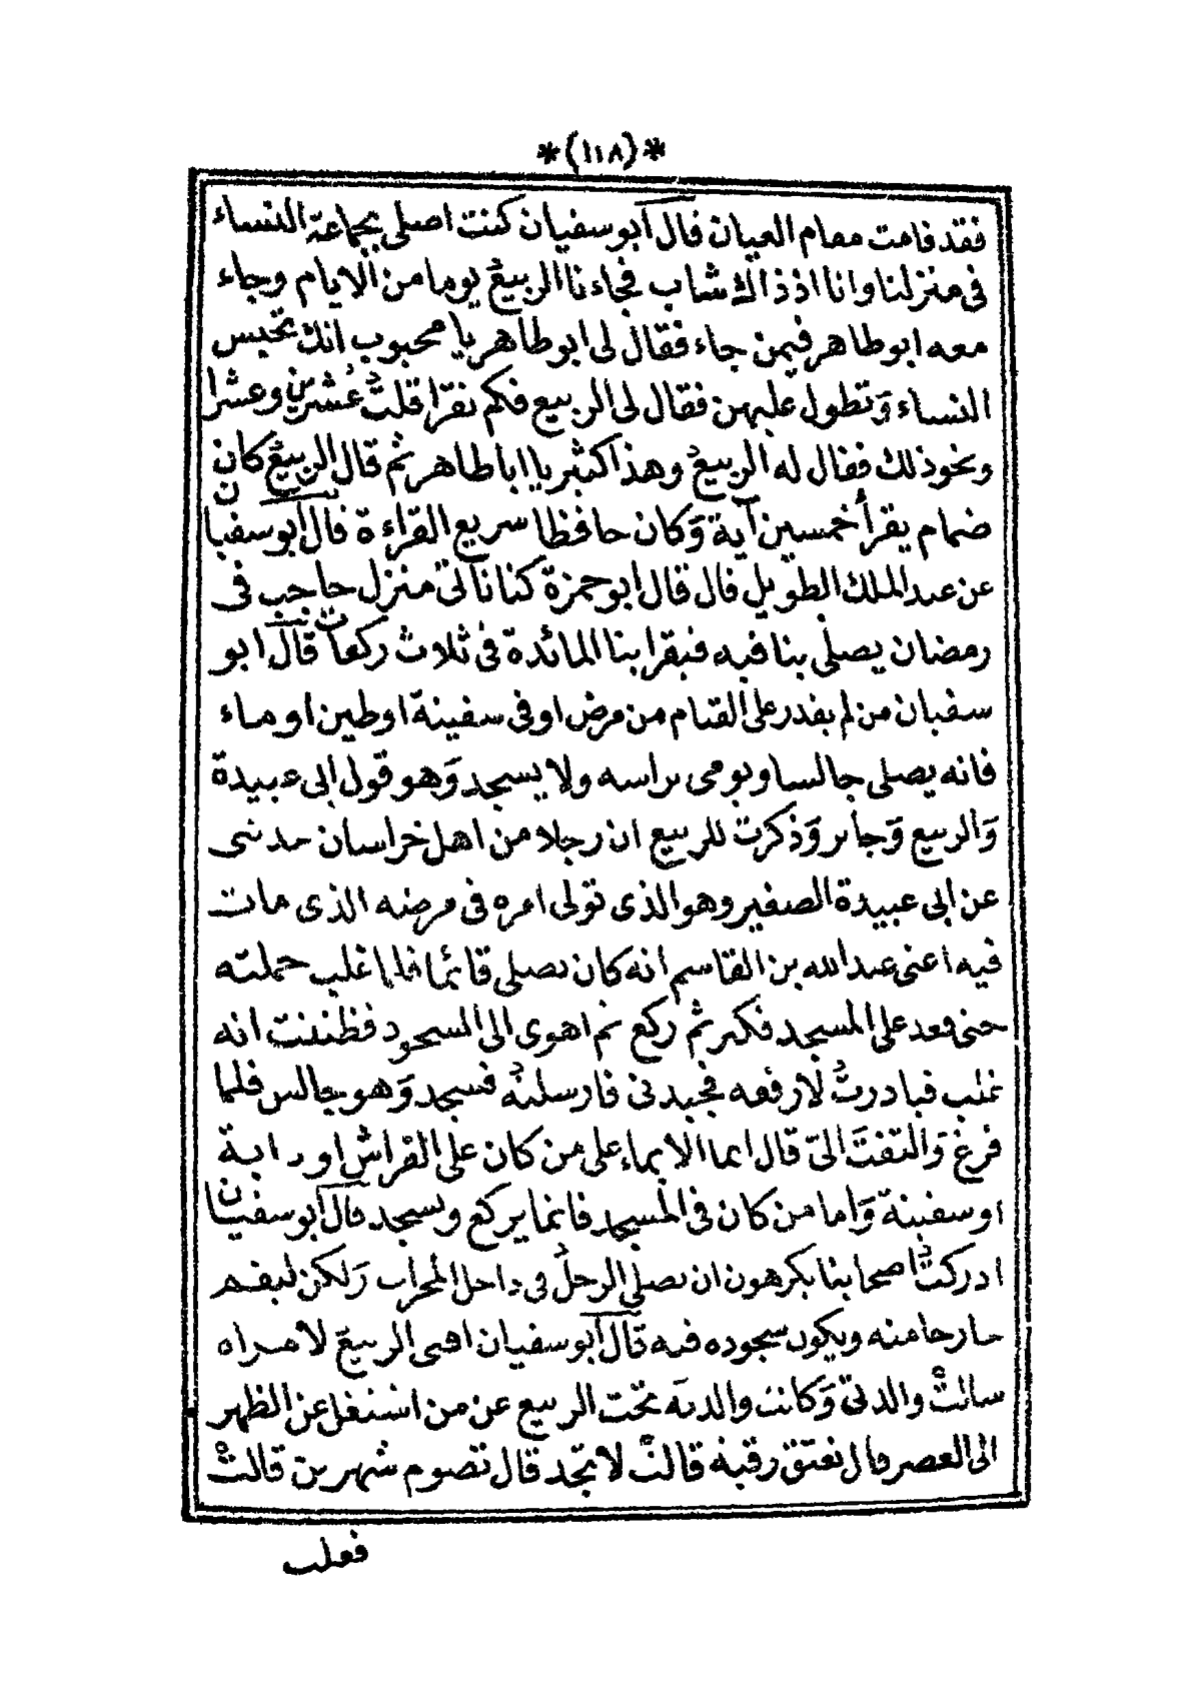 *(١١٨)*
فقد قامت مقام العيان قال ابو سفيان كنت اصلى بجماعة النساء
فى منزلنا وانا اذ ذاك شاب فجاءنا الربيعُ يوما من الايام وجاء
معه ابو طاهر فيمن جاء فقال لى ابو طاهر يا محبوب انك تحبس
النساء وَتطول عليهن فقال لى الربيع فكم تقرا قلتُ عُشرين وعشرا
ونحو ذلك فقال له الربيعُ وهذا كثير يا ابا طاهر ثم قال الربيعُ كان
ضمام يقرأ خمسين آية وَكان حافظا سريع القراءة قال ابو سفيان
عن عبد الملك الطويل قال قال ابو حمزة كنا نأتى منزل حاجب فى
رمضان يصلى بنا فيه فيقرا بنا المائدة فى ثلاث ركعات قال ابو
سفيان من لم يقدر على القيام من مرض او فى سفينة او طين او ماء
فانه يصلى جالسا ويومى براسه ولا يسجد وَهو قول ابى عبيدة
وَالربيع وَجابر وَذكرت للربيع ان رجلا من اهل خراسان حدثنى
عن ابى عبيدة الصغير وهو الذى تولى امره فى مرضه الذى مات
فيه اعنى عبد الله بن القاسم انه كان يصلى قائما فلما غلب حملته
حتى قعد على المسجد فكبر ثم ركع ثم اهوى الى السجود فظننت انه
غلب فبادرتُ لارفعه فجبدنى فارسلتهُ فسجد وَهو جالس فلما
فرغ وَالتفتَ الىّ قال انما الايماء على من كان على الفراش او دابة
او سفينة وَاما من كان فى المسجد فانما يركع ويسجد قال ابو سفيان
ادركتُ اصحابنا يكرهون ان يصلى الرجلُ فى داخل المحراب وَلكن ليقم
خارجا منه ويكون سجوده فيه قال ابو سفيان افتى الربيعُ لامراه
سالتْ والدتى وَكانت والدته تحت الربيع عن من اشتغل عن الظهر
الى العصر قال تعتق رقبة قالتْ لا تجد قال تصوم شهرين قالتْ
فعلب